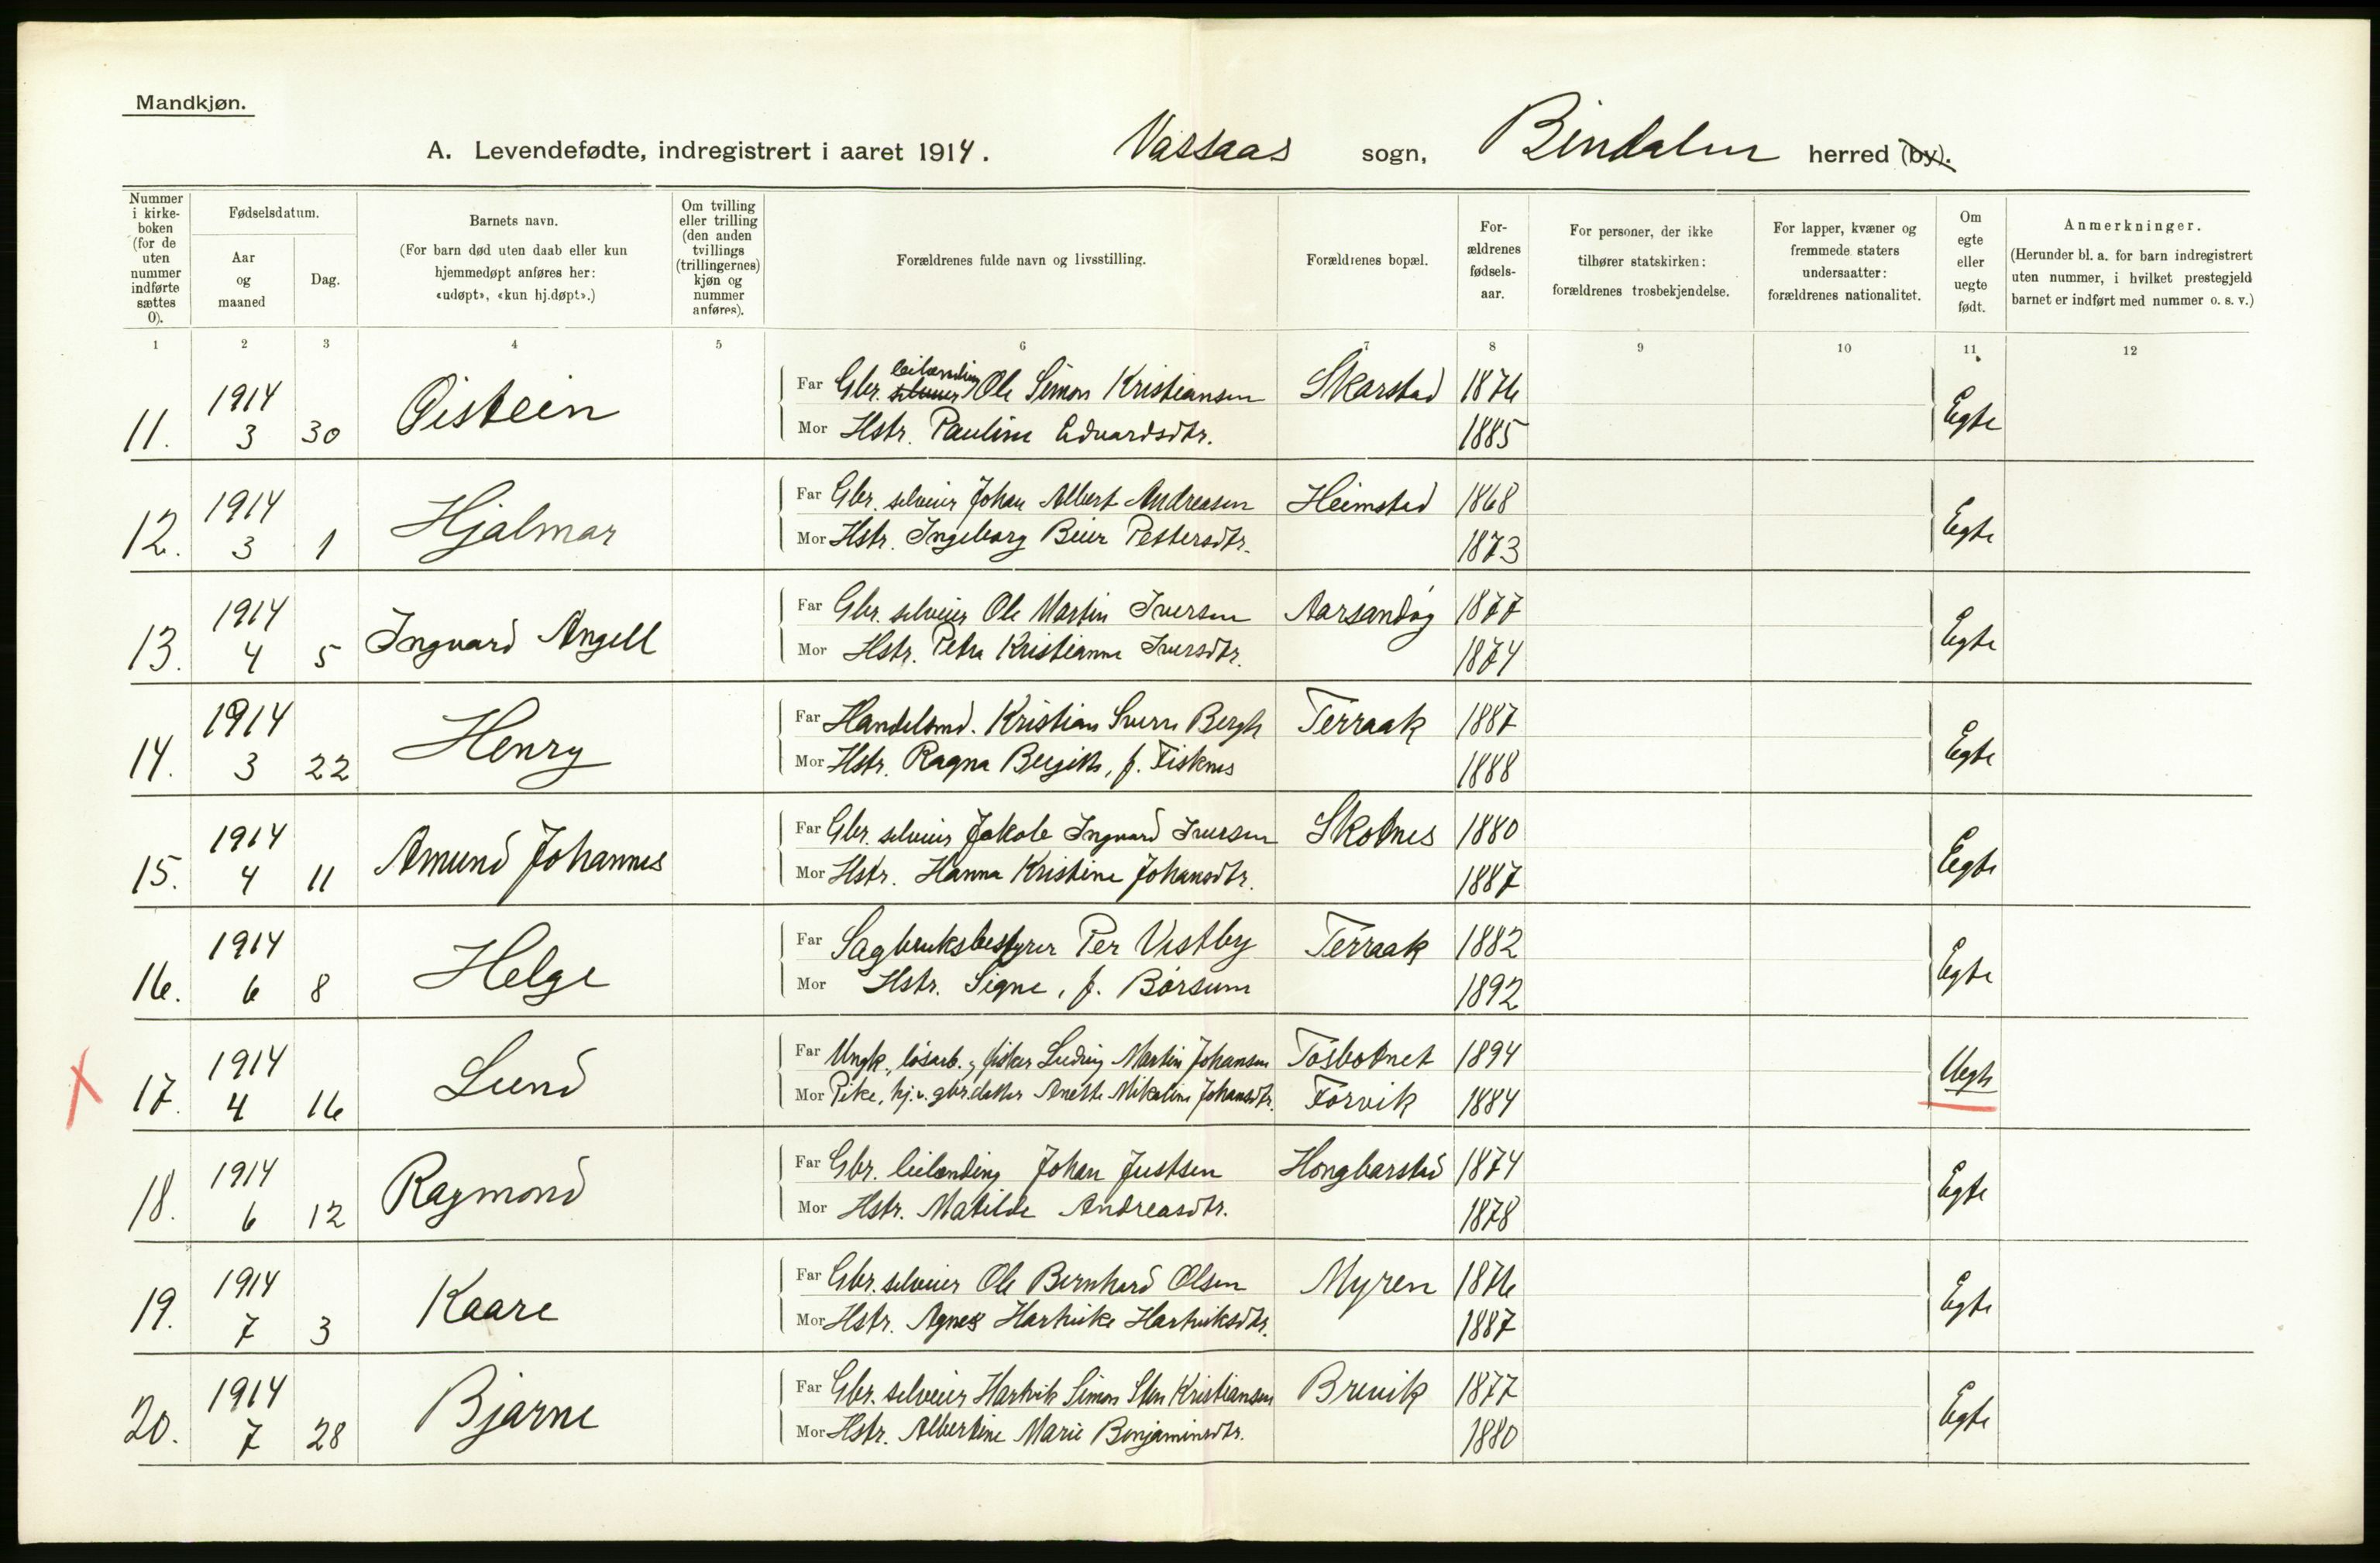 Mandkjøn.
A. Levendefødte, indregistrert i aaret 1914. Vassaas sogn, Bindalen herred (by).
Nummer i kirke- boken (for de uten nummer indførte sættes 0).
Fødselsdatum.
Aar og maaned
Dag.
Barnets navn.
(For barn død uten daab eller kun hjemmedøpt anføres her: «udøpt», «kun hj.døpt».)
Om tvilling eller trilling (den anden tvillings (trillingernes) kjøn og nummer anføres).
Forældrenes fulde navn og livsstilling.
Forældrenes bopæl.
For- ældrenes fødsels- aar.
For personer, der ikke tilhører statskirken: forældrenes trosbekjendelse.
For lapper, kvæner og fremmede staters undersaatter: forældrenes nationalitet.
Om egte eller uegte født.
Anmerkninger.
(Herunder bl. a. for barn indregistrert uten nummer, i hvilket prestegjeld barnet er indført med nummer o. s. v.)
1 2 3 4 5 6 7 8 9 10 11 12
11. 1914 3 30 Øistein
Far Gbr. selveier leilænding Ole Simon Kristiansen Skarstad 1876
Mor Hstr. Pauline Edvardsdtr. 1885 Egte
12. 1914 3 1 Hjalmar
Far Gbr. selveier Johan Albert Andreasen Heimstad 1868
Mor Hstr. Ingeborg Beier Pettersdtr. 1873 Egte
13. 1914 4 5 Ingvard Angell
Far Gbr. selveier Ole Martin Iversen Aarsandøy 1877
Mor Hstr. Petra Kristianne Iversdtr. 1874 Egte
14. 1914 3 22 Henry
Far Handelsmd. Kristian Sverre Bergh Terraak 1887
Mor Hstr. Ragna Bergith, f. Fisknes 1888 Egte
15. 1914 4 11 Amund Johannes
Far Gbr. selveier Jakob Ingvard Iversen Skotnes 1880
Mor Hstr. Hanna Kristine Johansdtr. 1887 Egte
16. 1914 6 8 Helge
Far Sagbruksbestyrer Per Vestby Terraak 1882
Mor Hstr. Signe, f. Børsum 1892 Egte
17. 1914 4 16 Lund
Far Ungk., løsarb. & fisker Ludvig Martin Johansen Tosbotnet 1894
Mor Pike, hj.v. gbr.datter Anette Mikaline Johansdtr. Forvik 1884 Uegte
18. 1914 6 12 Raymond
Far Gbr. leilænding Johan Justsen Hongbarstad 1874
Mor Hstr. Matilde Andreasdtr. 1878 Egte
19. 1914 7 3 Kaare
Far Gbr. selveier Ole Bernhard Olsen Myren 1876
Mor Hstr. Agnes Hartvike Hartviksdtr. 1887 Egte
20. 1914 7 28 Bjarne
Far Gbr. selveier Hartvik Simon Sten Kristiansen Brevik 1877
Mor Hstr. Albertine Marie Benjaminsdtr. 1880 Egte